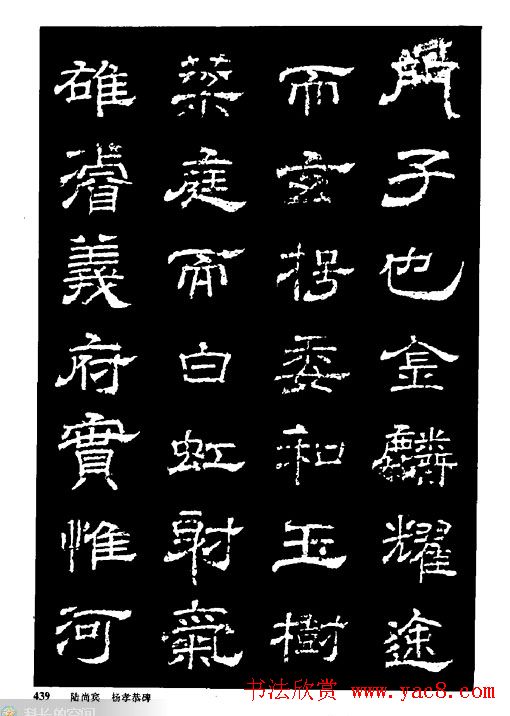 門子也金麟耀途
而玄㧞委和玉樹
蘂庭而白虹射氣
雄濬義府實惟河
439 陆尚宾 杨孝恭碑
书法欣赏 www.yac8.com
科长的空间